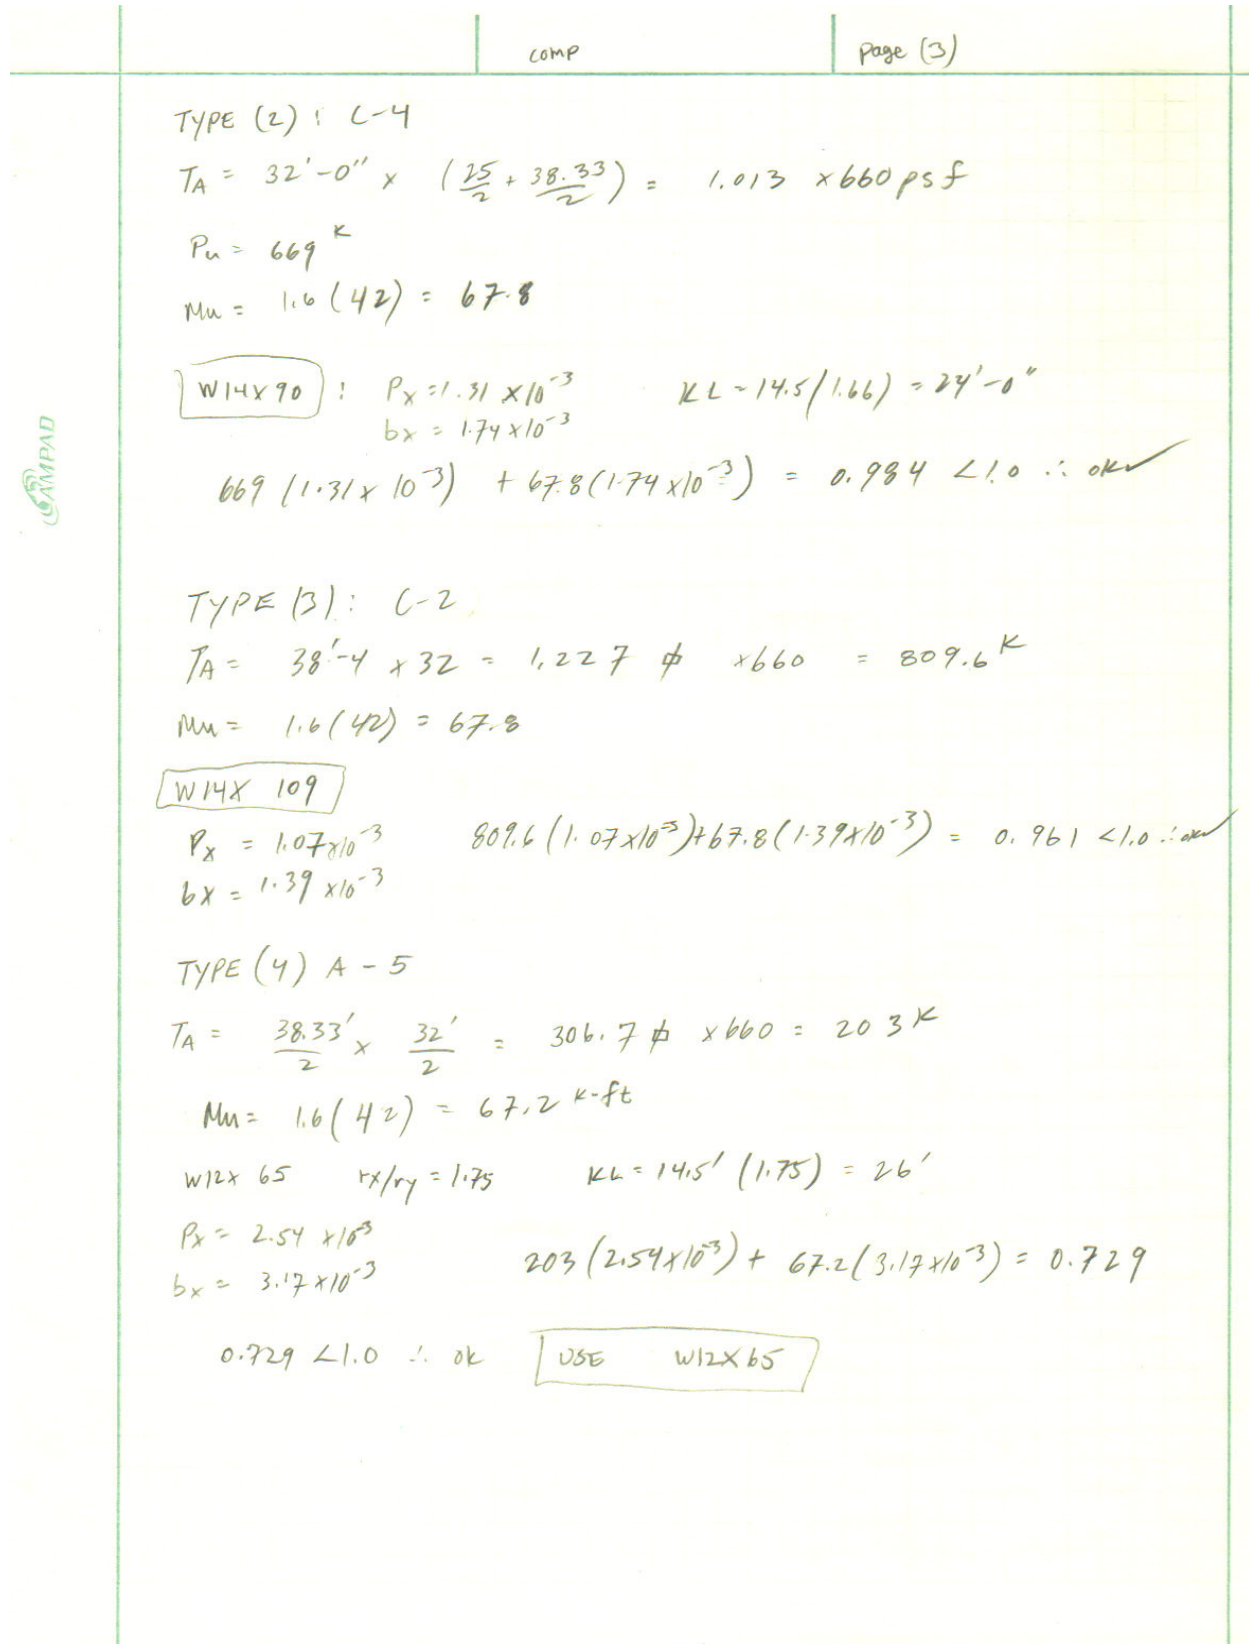 comp page (3)
TYPE (2) : C-4
TA = 32'-0" x (25/2 + 38.33/2) = 1.013 x 660 psf
Pu = 669 K
Mu = 1.6 (42) = 67.8
W14X90 : Px = 1.31 x10^-3 KL = 14.5/(1.66) = 24'-0"
bx = 1.74 x10^-3
669 (1.31 x 10^-3) + 67.8 (1.74 x10^-3) = 0.984 <1.0 ∴ ok✓
AMPAD
TYPE (3): C-2
TA = 38'-4 x 32 = 1,227 ⏀ x660 = 809.6 K
Mu = 1.6 (42) = 67.8
W14X 109
Px = 1.07x10^-3 809.6 (1.07 x10^-3)+67.8 (1.39x10^-3) = 0.961 <1.0 ∴ ok✓
bx = 1.39 x10^-3
TYPE (4) A - 5
TA = 38.33'/2 x 32'/2 = 306.7 ⏀ x 660 = 203 K
Mu = 1.6 (42) = 67.2 K-ft
W12x 65 rx/ry = 1.75 KL = 14.5' (1.75) = 26'
Px = 2.54 x10^-3
203 (2.54x10^-3) + 67.2 (3.17x10^-3) = 0.729
bx = 3.17 x10^-3
0.729 <1.0 ∴ ok USE W12X65